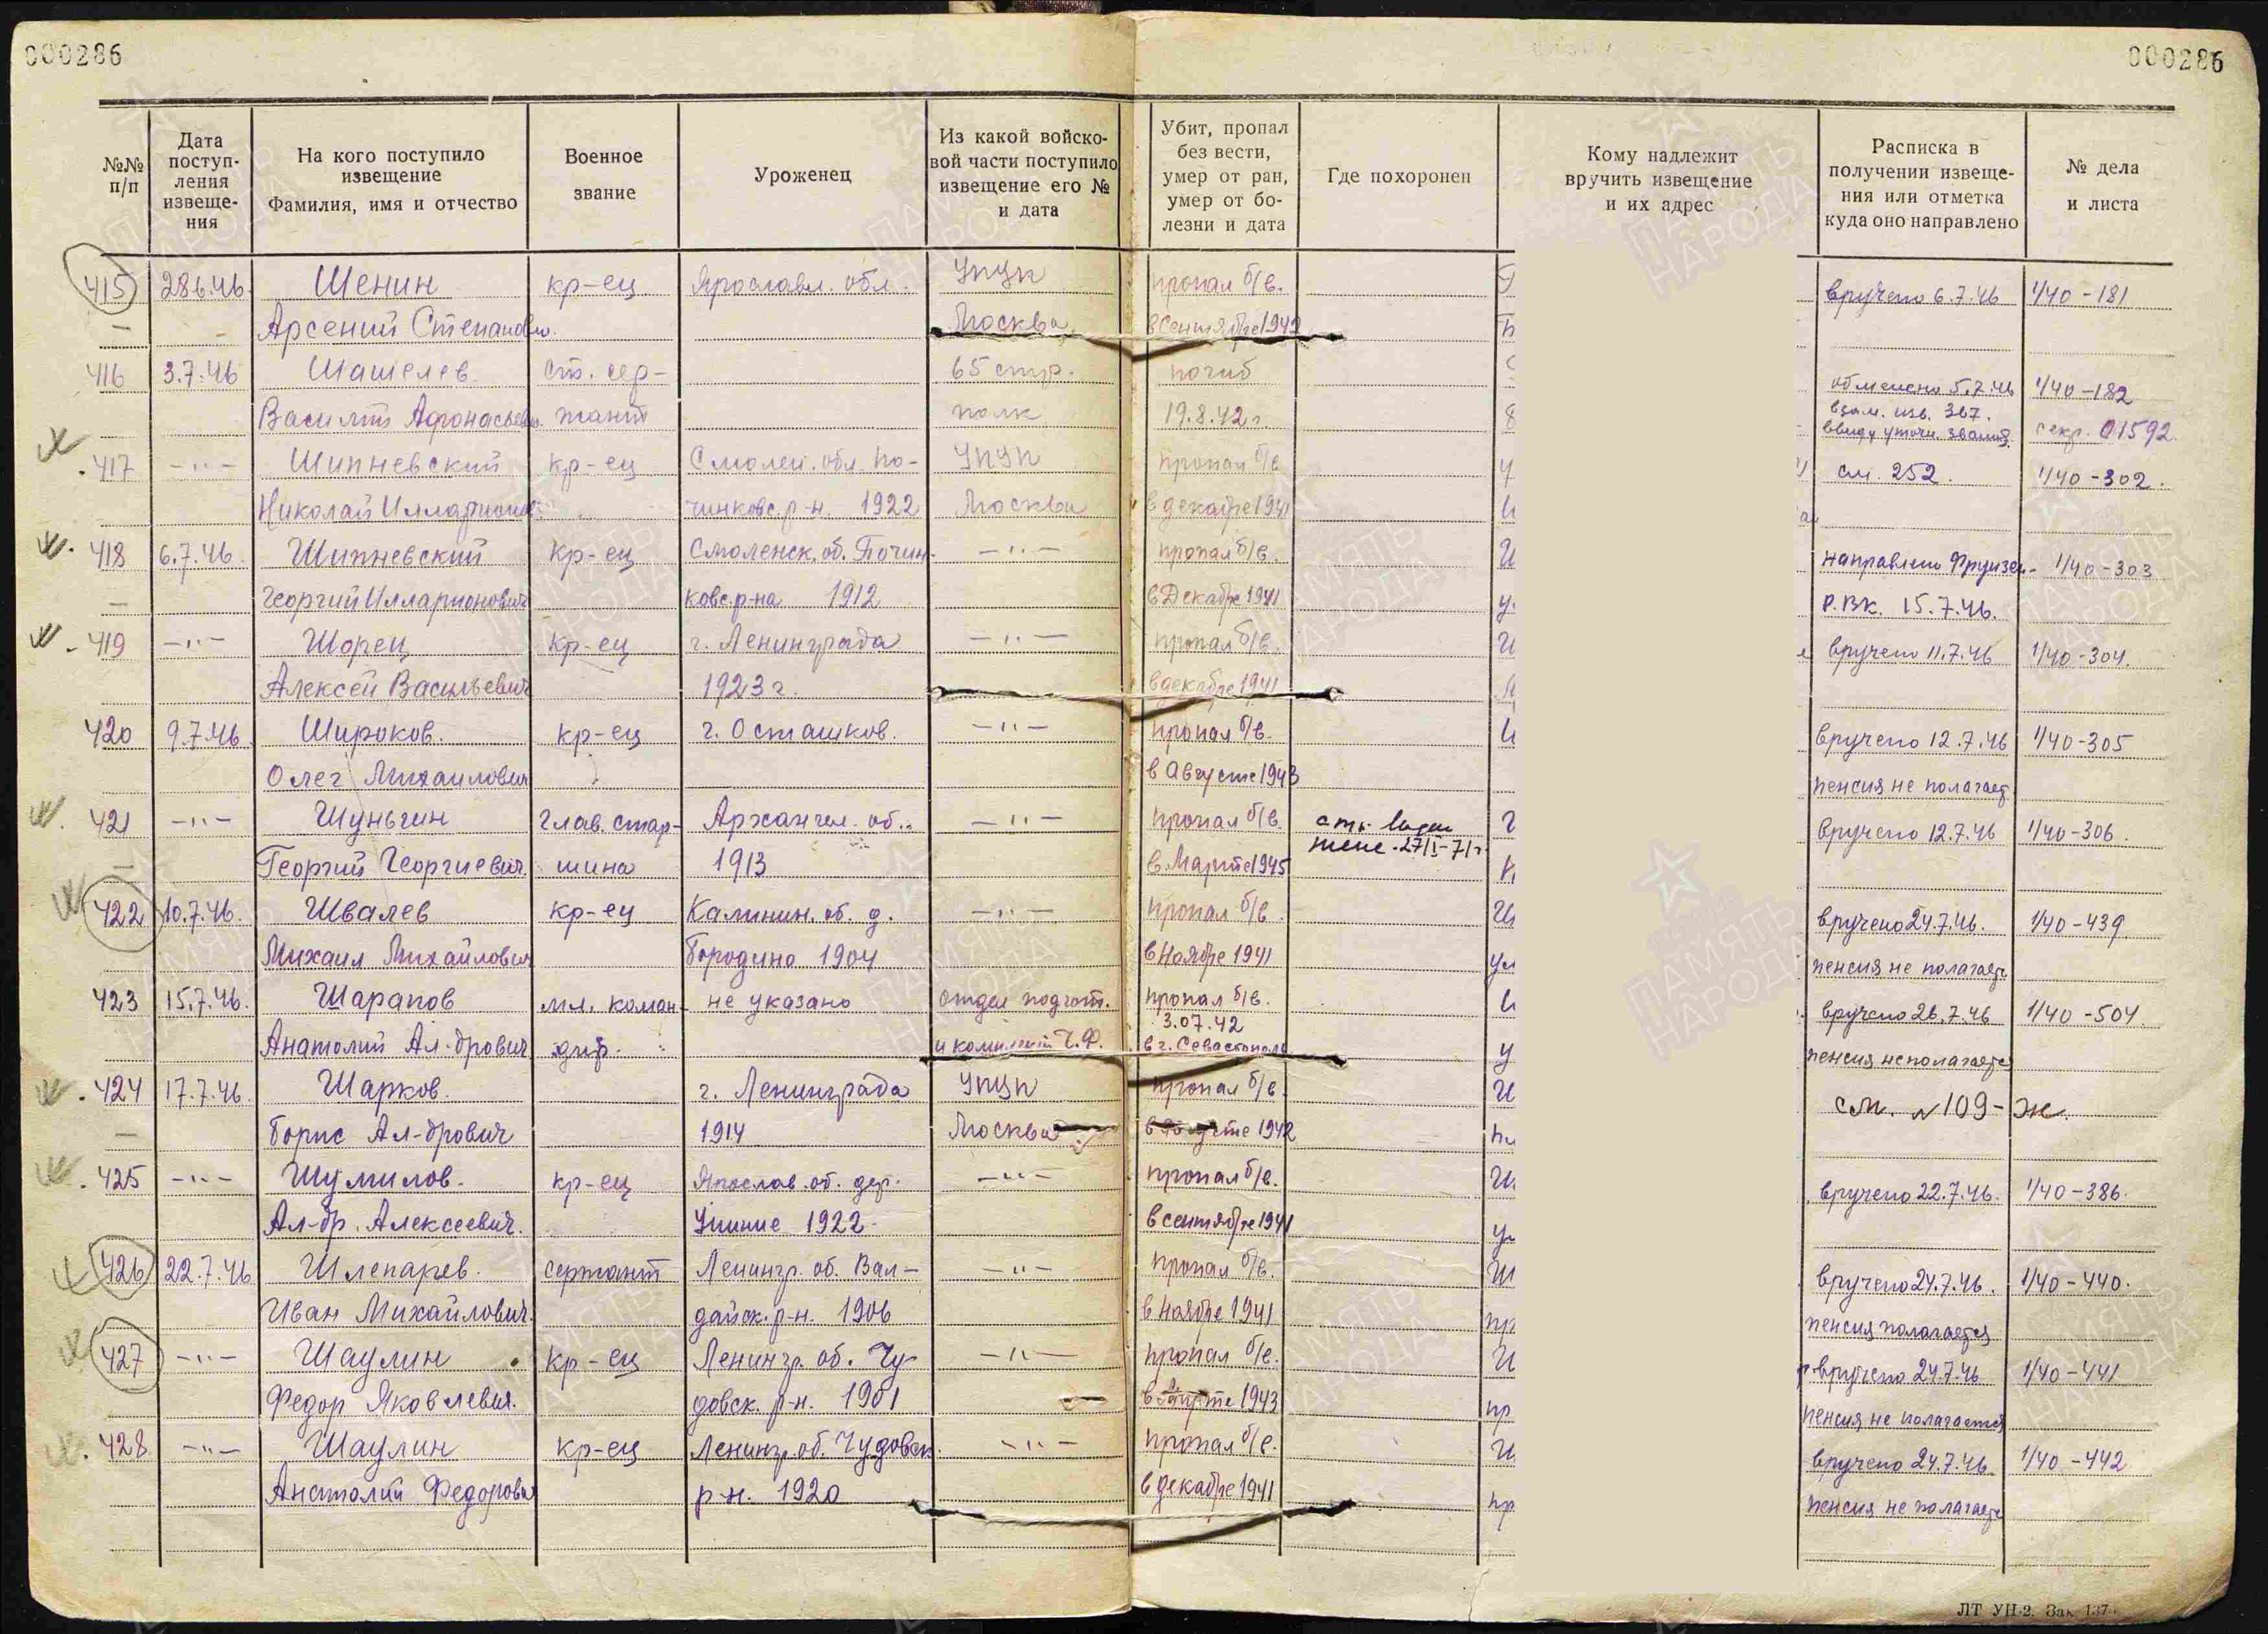 000286
000286
№№ п/п
Дата поступ-
ления
извеще-
ния
На кого поступило
извещение
Фамилия, имя и отчество
Военное
звание
Уроженец
Из какой войско-
вой части поступило
извещение его №
и дата
Убит, пропал
без вести,
умер от ран,
умер от бо-
лезни и дата
Где похоронен
Кому надлежит
вручить извещение
и их адрес
Расписка в
получении извеще-
ния или отметка
куда оно направлено
№ дела
и листа
415 28.6.46. Шенин кр-ец Ярославл. обл. УПУП пропал б/в. вручено 6.7.46 1/40-181
Арсений Степанович Москва в Сентябре 1942
416 3.7.46 Шашелев ст. сер- 65 стр. погиб обменено 5.7.46 1/40-182
Василий Афонасьевич жант полк 19.8.42 г. взам. изв. 367.
ввиду уточн. звания секр. 01592
417 -"- Шипневский кр-ец Смолен. обл. По- УПУП пропал б/в см. 252. 1/40-302.
Николай Илларионов. чинковс. р-н. 1922 Москва в декабре 1941
418 6.7.46. Шипневский кр-ец Смоленск. об. Почин- -"- пропал б/в. направлено Фрунзен- 1/40-303
Георгий Илларионович ковс. р-на 1912 в Декабре 1941 Р.ВК. 15.7.46.
419 -"- Шорец кр-ец г. Ленинграда -"- пропал б/в. вручено 11.7.46 1/40-304.
Алексей Васильевич 1923 г. в декабре 1941
420 9.7.46. Широков. кр-ец г. Осташков. -"- пропал б/в. вручено 12.7.46 1/40-305
Олег Михаилович в Августе 1943 пенсия не полагает
421 -"- Шуньгин глав. стар- Архангел. об. -"- пропал б/в. вручено 12.7.46 1/40-306.
Георгий Георгиевич шина 1913 в Марте 1945 27/I-71г
422 10.7.46. Швалев кр-ец Калинин. об. д. -"- пропал б/в. вручено 24.7.46. 1/40-439
Михаил Михайлович Бородино 1904 в Ноябре 1941 пенсия не полагаетс
423 15.7.46. Шарапов мл. коман- не указано отдел подгот. пропал б/в. вручено 26.7.46 1/40-504.
3.07.42
Анатолий Ал-дрович дир. Ч.Ф. в г. Севастополь пенсия не полагаетс
424 17.7.46. Шарков. г. Ленинграда УПУП пропал б/в. см. №109-Ж.
Борис Ал-дрович 1914 Москва в Августе 1942
425 -"- Шумилов. кр-ец Ярослав. об. дер. -"- пропал б/в. вручено 22.7.46. 1/40-386.
Ал-др. Алексеевич. 1922 в сентябре 1941
426 22.7.46 Шлепарев. сержант Ленингр. об. Вал- -"- пропал б/в. вручено 24.7.46. 1/40-440.
Иван Михайлович. дайск. р-н. 1906 в Ноябре 1941 пенсия полагается
427 -"- Шаулин кр-ец Ленингр. об. Чу- -"- пропал б/в. вручено 24.7.46 1/40-441
Федор Яковлевич. довск. р-н. 1901 в Марте 1943 пенсия не полагается
428 -"- Шаулин кр-ец Ленингр. об. Чудовск. -"- пропал б/в. вручено 24.7.46. 1/40-442
Анатолий Федорович р-н. 1920 в декабре 1941 пенсия не полагаетс
ЛТ УН-2. Зак 137
ПАМЯТЬ НАРОДА